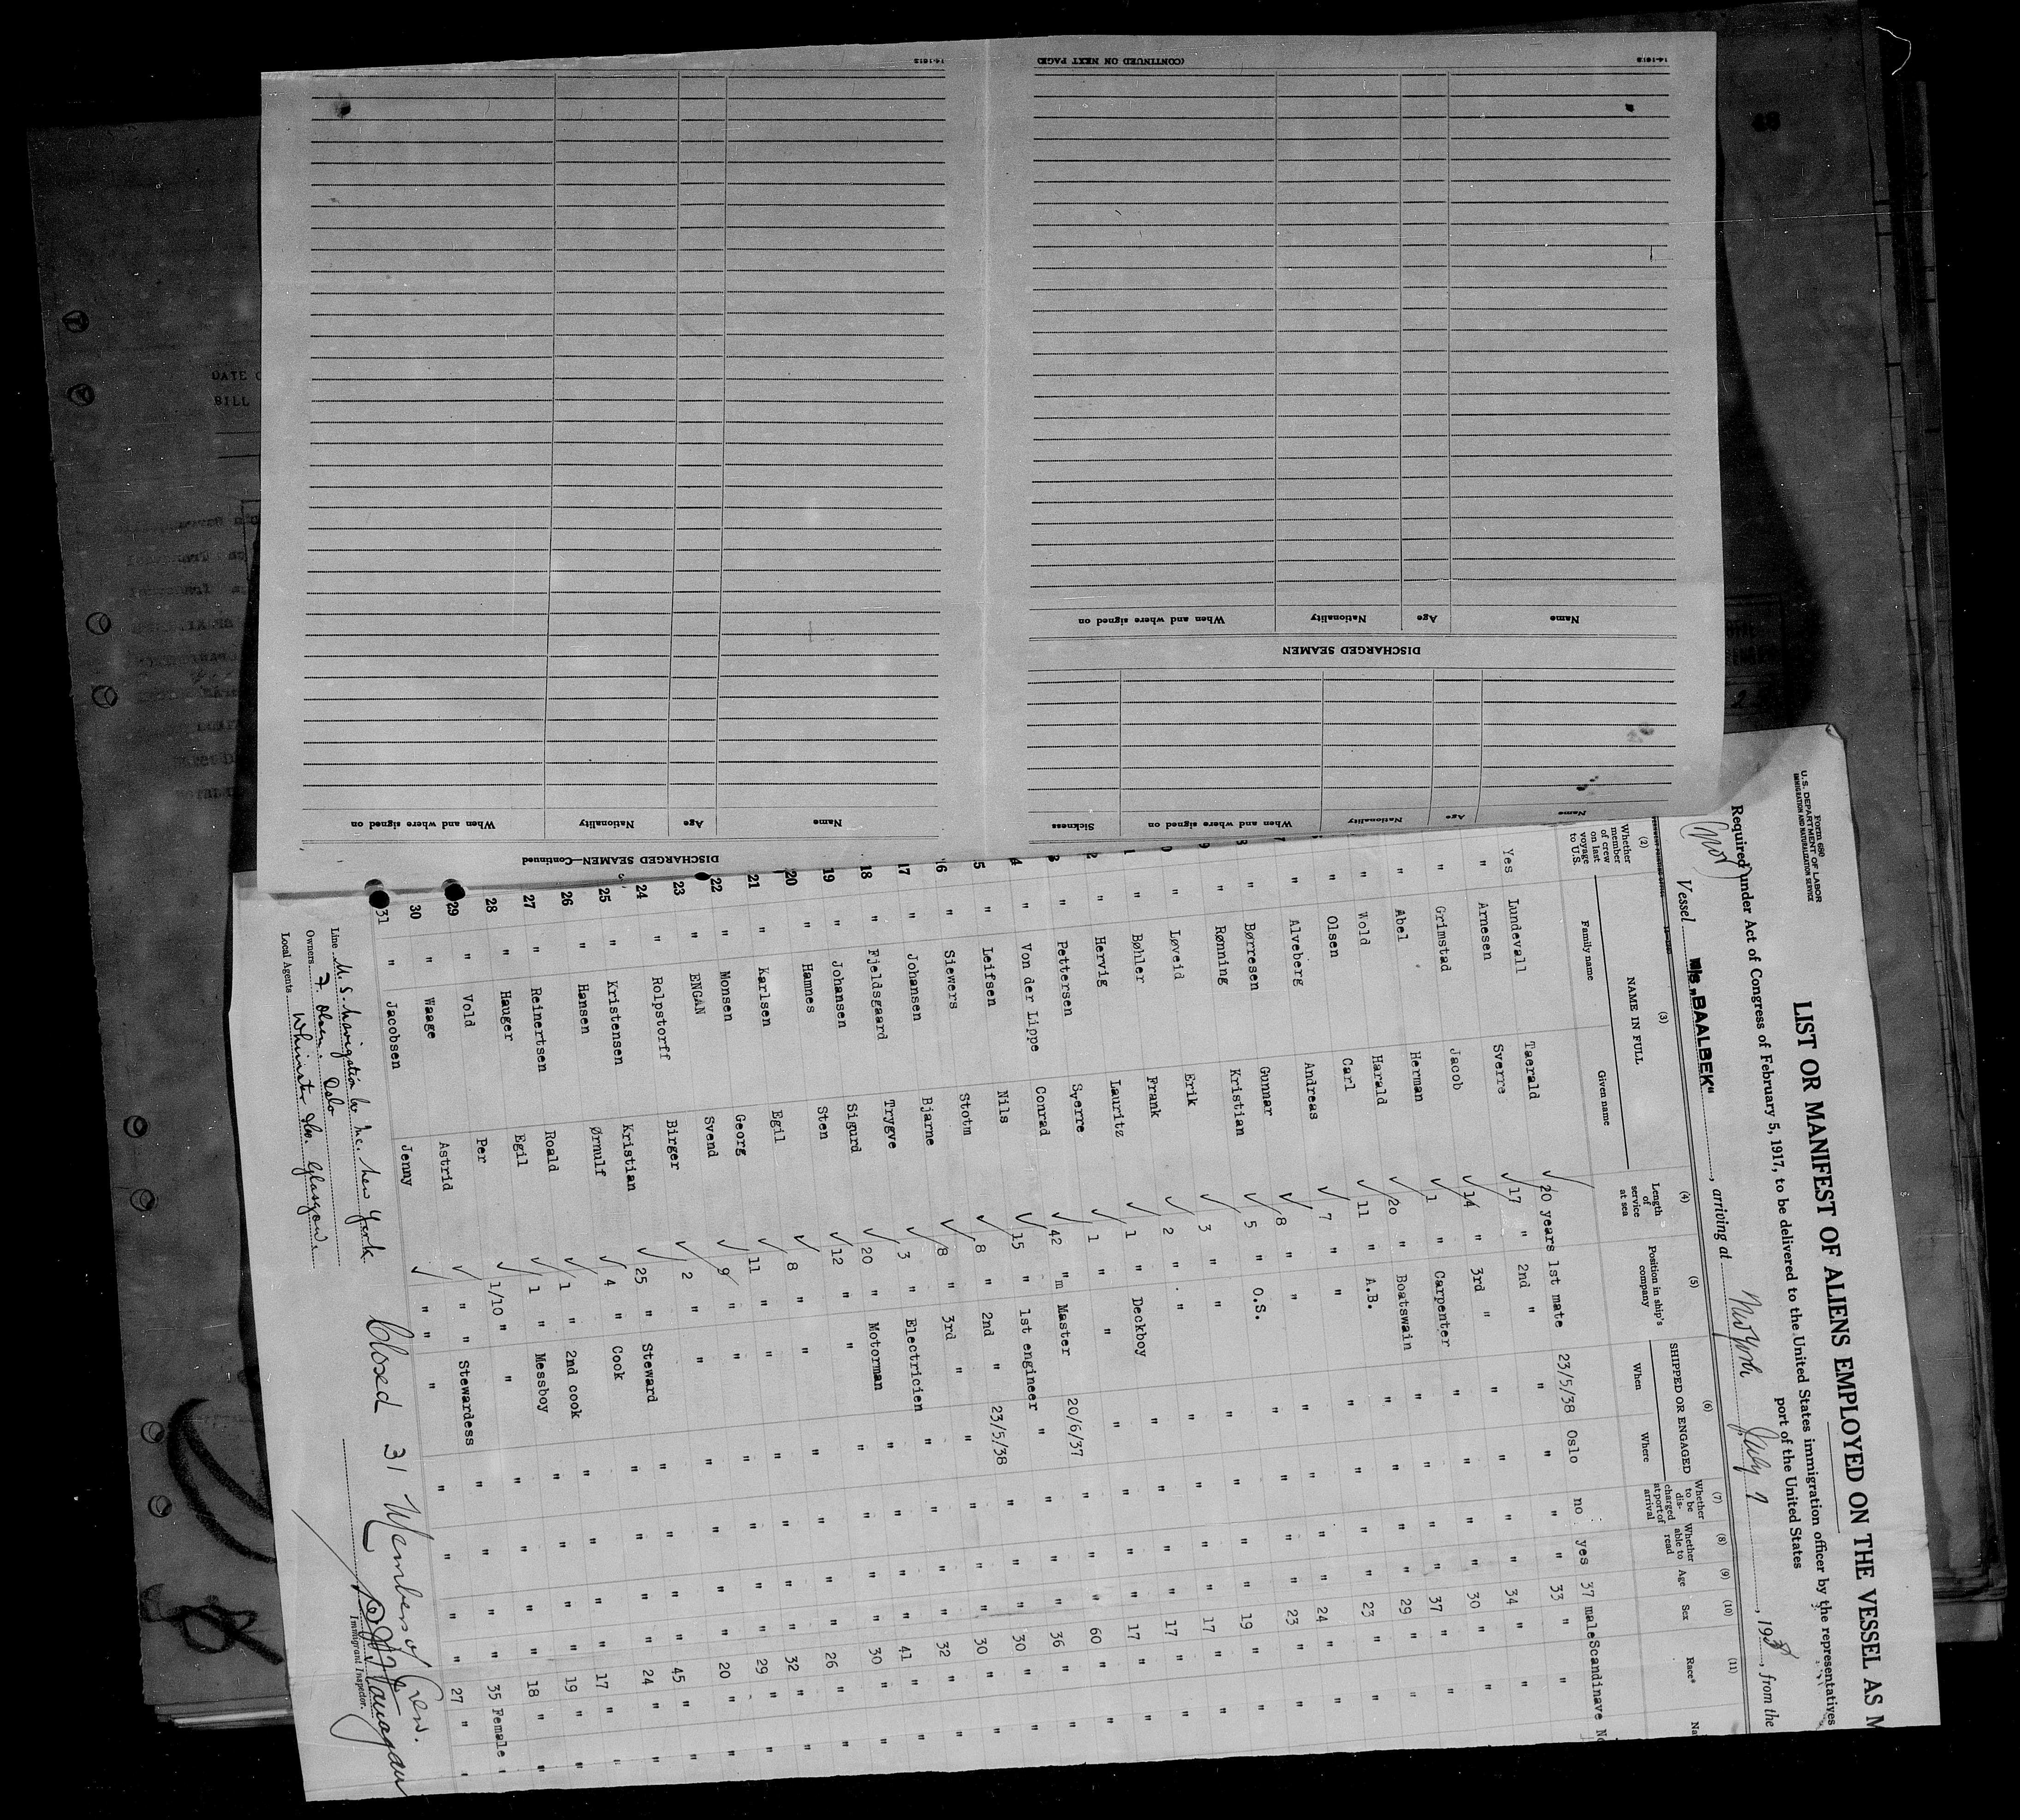 14-1613
(CONTINUED ON NEXT PAGE)
14-1613
DISCHARGED SEAMEN
Name Age Nationality When and where signed on
Name Age Nationality When and where signed on Sickness
DISCHARGED SEAMEN—Continued
Name Age Nationality When and where signed on
DATE
BILL
Form 680
U.S. DEPARTMENT OF LABOR
IMMIGRATION AND NATURALIZATION SERVICE
LIST OR MANIFEST OF ALIENS EMPLOYED ON THE VESSEL AS M
Required under Act of Congress of February 5, 1917, to be delivered to the United States immigration officer by the representatives
port of the United States
Vessel M/s „BAALBEK", arriving at New York July 7, 1938, from the
(2) (3) (4) (5) (6) (7) (8) (9) (10) (11)
Whether member of crew on last voyage to U.S. NAME IN FULL Family name Given name Length of service at sea Position in ship's company SHIPPED OR ENGAGED When Where Whether to be discharged at port of arrival Whether able to read Age Sex Race* Na
Yes Lundevall Taerald 20 years 1st mate 23/5/38 Oslo no yes 37 male Scandinave No
" Arnesen Sverre 17 " 2nd " " " " " 33 " "
" Grimstad Jacob 14 " 3rd " " " " " 34 " "
" Abel Herman 1 " Carpenter " " " " 30 " "
" Wold Harald 20 " Boatswain " " " " 37 " "
" Olsen Carl 11 " A.B. " " " " 29 " "
" Alveberg Andreas 7 " " " " " " 23 " "
" Børresen Gunnar 8 " " " " " " 24 " "
" Rønning Kristian 5 " O.S. " " " " 23 " "
" Løveid Erik 3 " " " " " " 19 " "
" Bøhler Frank 2 " " " " " " 17 " "
" Hervig Lauritz 1 " Deckboy " " " " 17 " "
" Pettersen Sverre 1 " " " " " " 17 " "
" Von der Lippe Conrad 42 "m Master 20/6/37 " " " 60 " "
" Leifsen Nils 15 " 1st engineer " " " " 36 " "
" Siewers Stotm 8 " 2nd " 23/5/38 " " " 30 " "
17 " Johansen Bjarne 8 " 3rd " " " " " 30 " "
18 " Fjeldsgaard Trygve 3 " Electricien " " " " 32 " "
19 " Johansen Sigurd 20 " Motorman " " " " 41 " "
20 " Hamnes Sten 12 " " " " " " 30 " "
21 " Karlsen Egil 8 " " " " " " 26 " "
22 " Monsen Georg 11 " " " " " " 32 " "
23 " ENGAN Svend 9 " " " " " " 29 " "
24 " Rolpstorff Birger 2 " " " " " " 20 " "
25 " Kristensen Kristian 25 " Steward " " " " 45 " "
26 " Hansen Ørnulf 4 " Cook " " " " 24 " "
27 " Reinertsen Roald 1 " 2nd cook " " " " 17 " "
28 " Hauger Egil 1 " Messboy " " " " 19 " "
29 " Vold Per 1/10 " " " " " " 18 " "
30 " Waage Astrid " " Stewardess " " " " 35 Female "
31 " Jacobsen Jenny " " " " " " " 27 " "
Line U.S. Navigation Co Inc. New York
Owners F. Olsen. Oslo
Local Agents Glasgow.
Closed 31 Members of Crew.
Immigrant Inspector.